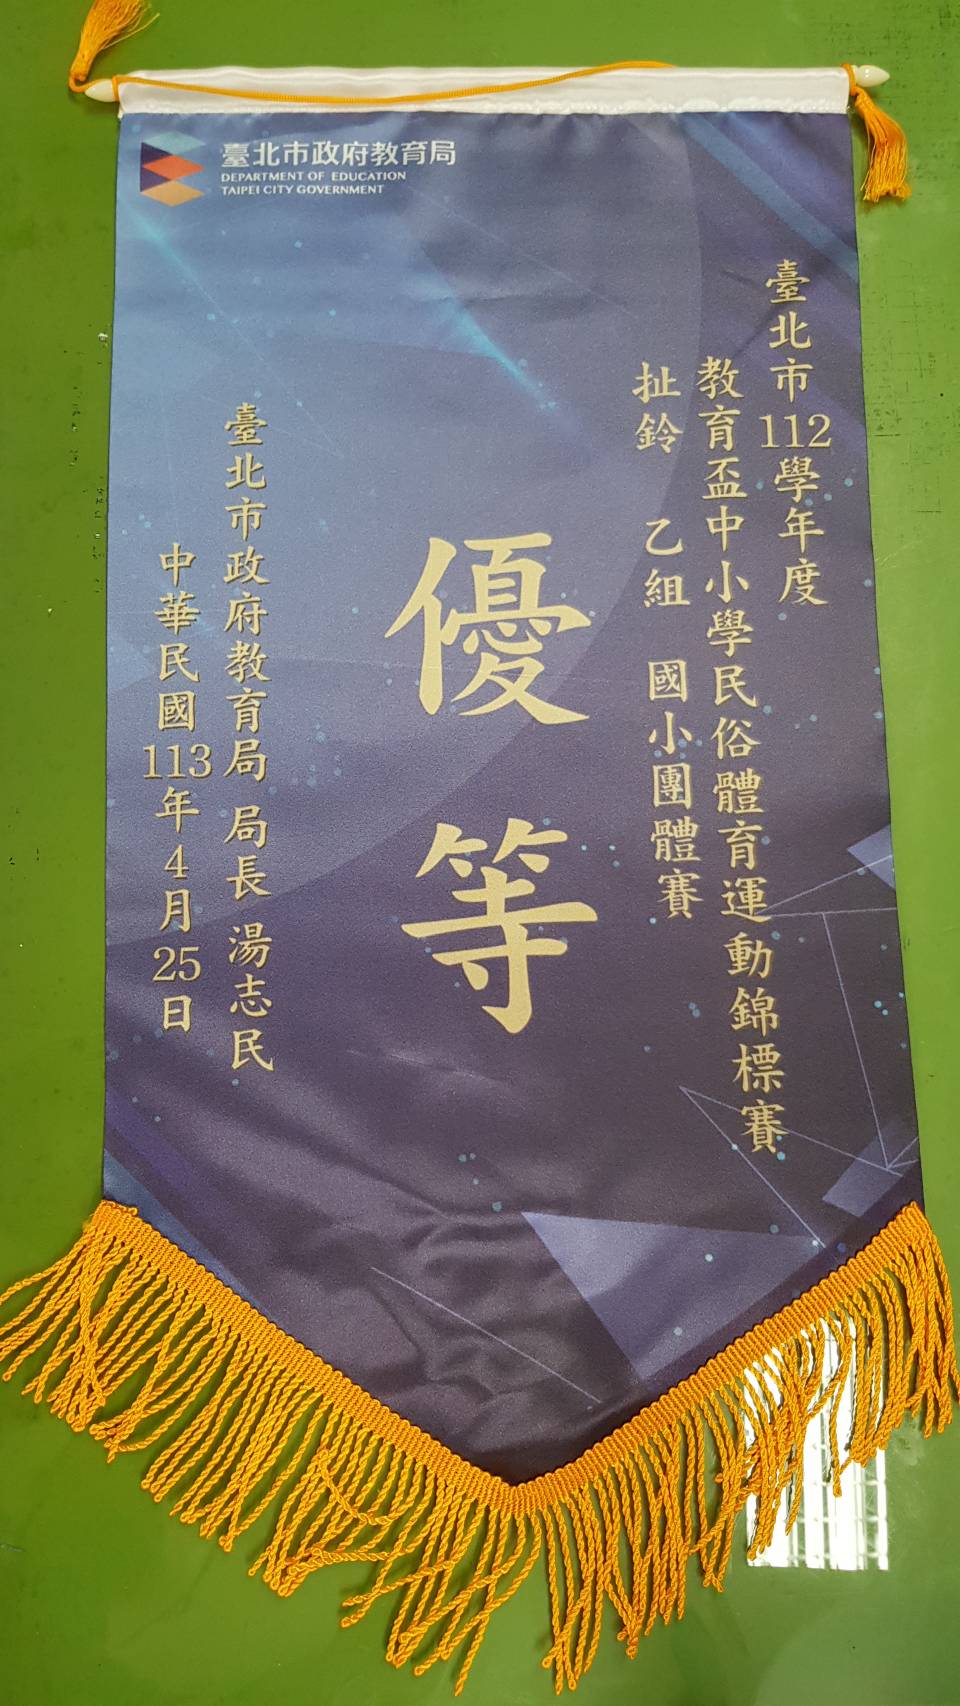 臺北市政府教育局
DEPARTMENT OF EDUCATION
TAIPEI CITY GOVERNMENT
臺北市112學年度
教育盃中小學民俗體育運動錦標賽
扯鈴 乙組 國小團體賽
優等
臺北市政府教育局 局長 湯志民
中華民國113年4月25日